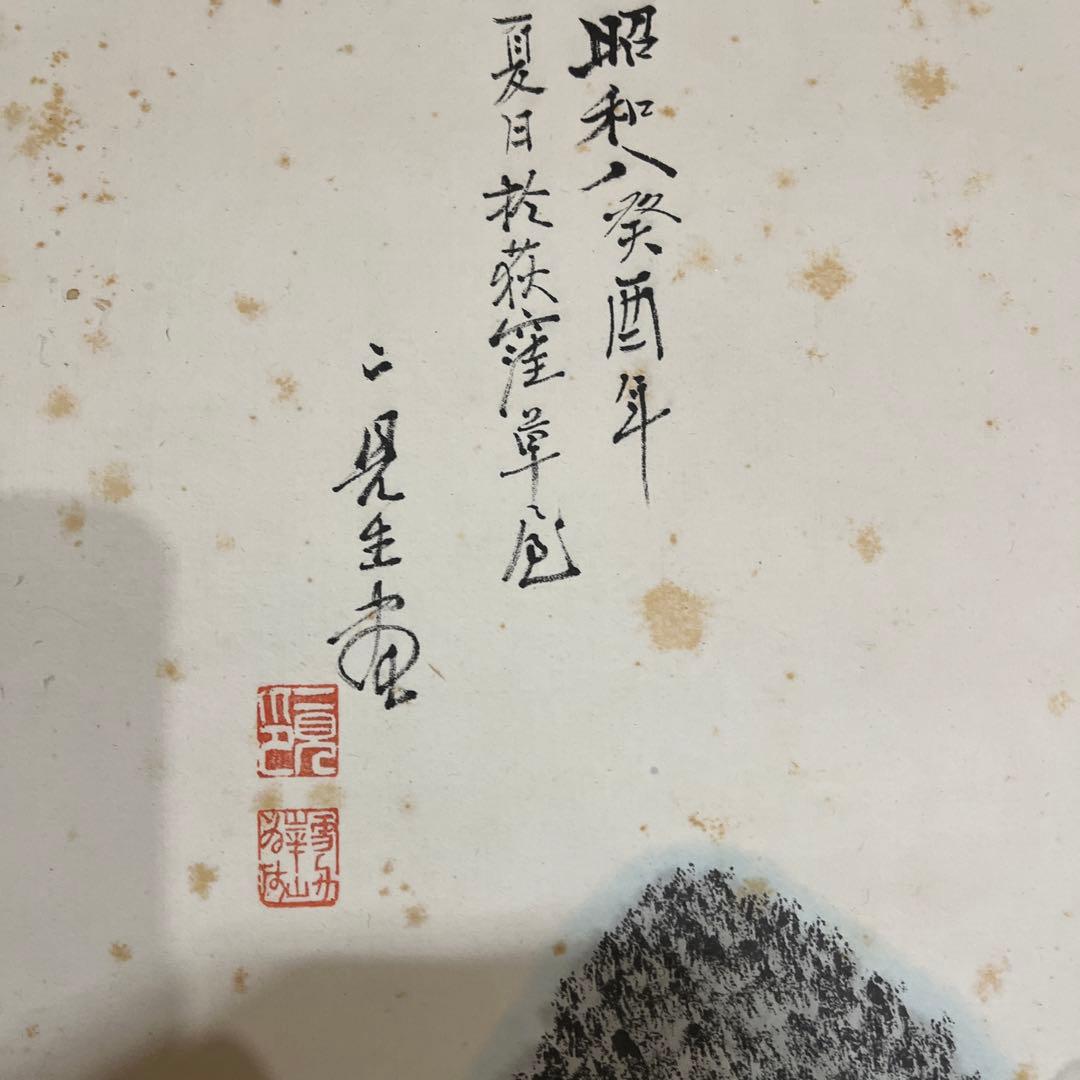 昭和八癸酉年
夏日於荻窪草屋
二見生画